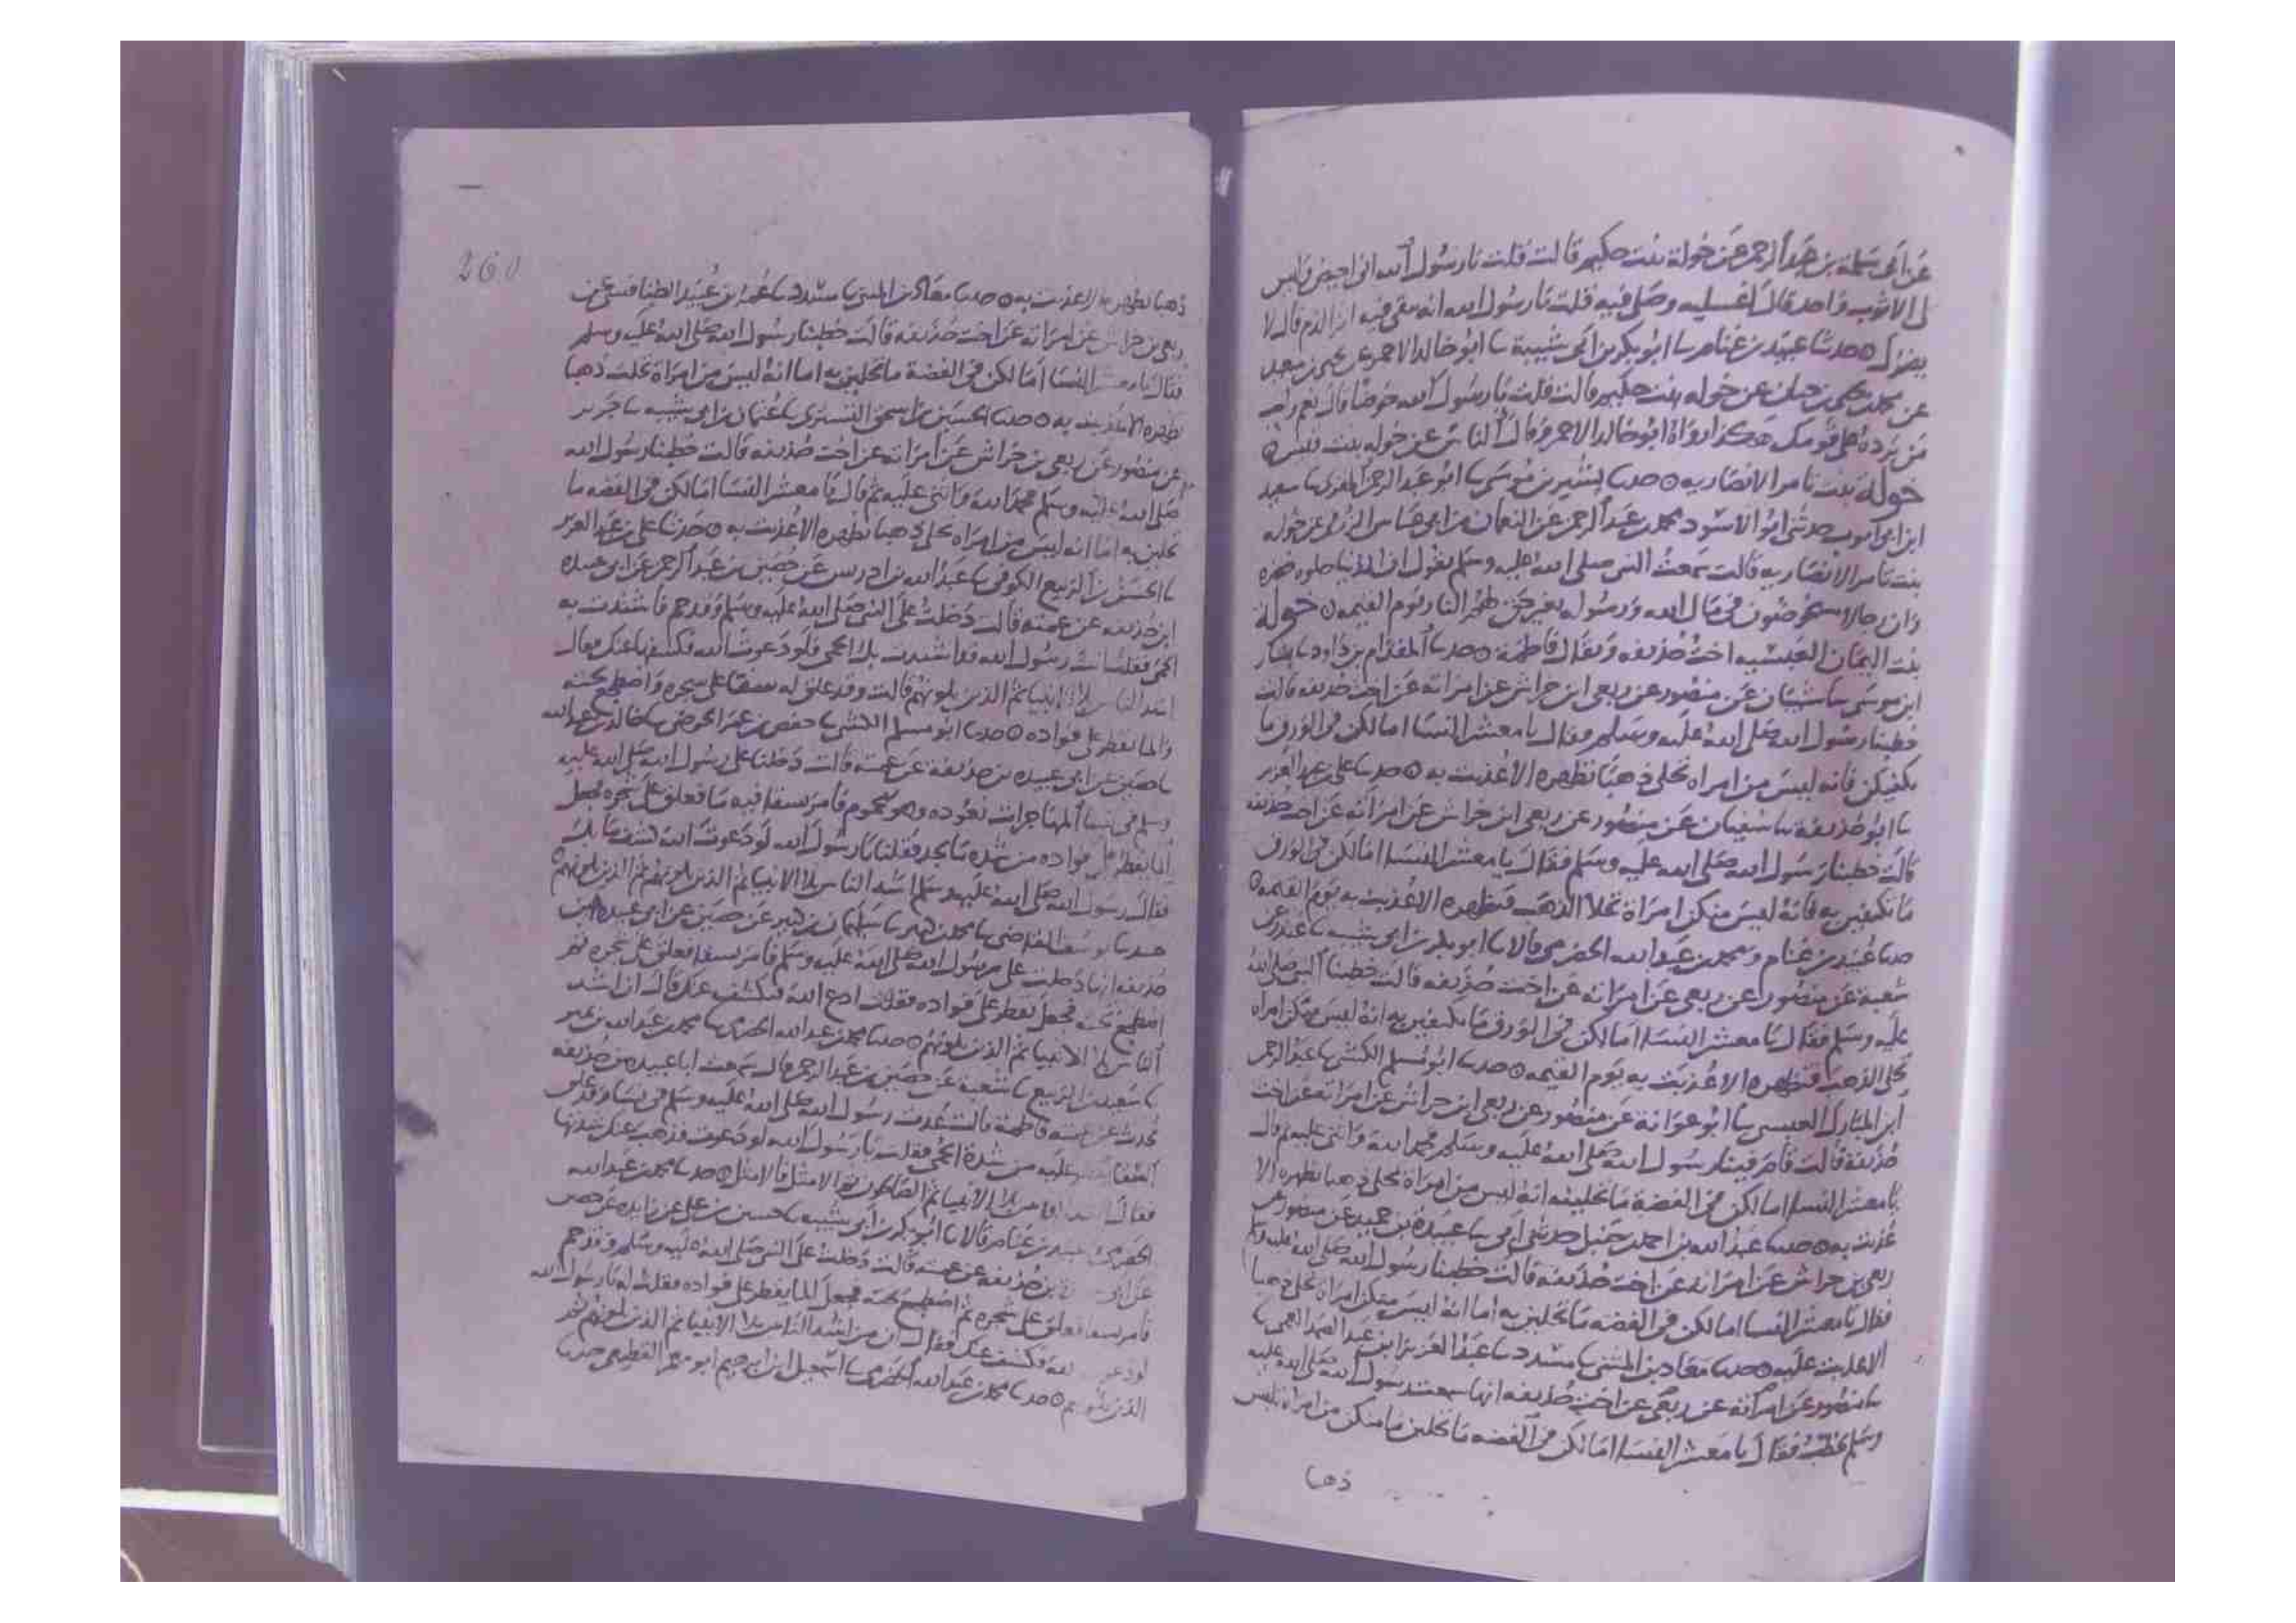 عن ابى سلمة بن عبد الرحمن عن خولة بنت حكيم قالت قلت يا رسول الله انى احيض وليس
لى الا ثوب واحد قال اغسليه وصلى فيه قلت يا رسول الله انه يبقى فيه اثر الدم قال لا
يضرك ۞ حدثنا عبيد بن غنام ثنا ابو بكر بن ابى شيبة ثنا ابو خالد الاحمر عن يحيى بن سعيد
عن محمد بن يحيى بن حبان عن خوله بنت حكيم قالت قلت يا رسول الله حوضا قال نعم
من يرده على قومك هكذا رواه ابو خالد الاحمر وقال الناس عن خوله بنت قيس ۞
خولة بنت ثامر الانصاريه ۞ حدثنا بشير بن موسى ثنا ابو عبد الرحمن المقرى ثنا سعيد
ابن ابى ايوب حدثنى ابو الاسود محمد بن عبد الرحمن عن النعمان بن ابى عياش الزرقى عن خوله
بنت ثامر الانصاريه قالت سمعت النبى صلى الله عليه وسلم يقول ان الدنيا حلوه خضره
وان رجالا يتخوضون فى مال الله ورسوله بغير حق لهم النار يوم القيمه ۞ خولة
بنت اليمان العبسيه اخت حذيفه ويقال فاطمة ۞ حدثنا المقدام بن داود ثنا
ابن موسى ثنا شيبان عن منصور عن ربعى ابن حراش عن امراته عن اخت حذيفه قالت
خطبنا رسول الله صلى الله عليه وسلم وقال يا معشر النسا اما لكن فى الورق ما
يكفيكن فانه ليس من امراه تحلى ذهبا تظهره الا عذبت به ۞ حدثنا على بن عبد العزيز
ثنا ابو حذيفة ثنا سفيان عن منصور عن ربعى ابن حراش عن امراته عن اخت حذيفه
قالت خطبنا رسول الله صلى الله عليه وسلم فقال يا معشر النسا اما لكن فى الورق
ما تكتفين به فانه ليس منكن امراة تحلا الذهب فتظهره الا عذبت به يوم القيمه ۞
حدثنا عبيد بن غنام ومحمد بن عبد الله الحضرمى قالا ثنا ابو بكر بن ابى شيبه ثنا غندر عن
شعبة عن منصور عن ربعى عن امراته عن اخت حذيفه قالت خطبنا النبى صلى الله
عليه وسلم فقال يا معشر النسا اما لكن فى الورق ما تكتفين به انه ليس منكن امراه
تحلى الذهب فتظهره الا عذبت به يوم القيمه ۞ حدثنا ابو مسلم الكشى ثنا عبد الرحمن
ابن المبارك العيشى ثنا ابو عوانة عن منصور عن ربعى ابن حراش عن امراته عن اخت
حذيفة قالت قام فينا رسول الله صلى الله عليه وسلم فحمد الله واثنى عليه ثم قال
يا معشر النسا اما لكن فى الفضة ما تحلينه انه ليس من امراة تحلى ذهبا تظهره الا
عذبت به ۞ حدثنا عبد الله بن احمد بن حنبل حدثنى ابى ثنا عبيدة بن حميد عن منصور عن
ربعى بن حراش عن امراته عن اخت حذيفه قالت خطبنا رسول الله صلى الله عليه وسلم
فقال يا معشر النسا اما لكن فى الفضه ما تحلين به اما انه ليس منكن امراة تحلى ذهبا
الا عذبت عليه ۞ حدثنا معاذ بن المثنى ثنا مسدد ثنا عبد العزيز ابن عبد الصمد العمى ثنا
منصور عن امراته عن ربعى عن اخت حذيفه انها سمعت رسول الله صلى الله عليه
وسلم يخطب فقال يا معشر النسا اما لكن فى الفضه ما تحلين ما منكن من امراة تلبس
ذهبا
260
ذهبا تظهره الا عذبت به ۞ حدثنا معاذ بن المثنى ثنا مسدد ثنا عمر بن عبيد الطنافسى عن
ربعى بن حراش عن امراته عن اخت حذيفه قالت خطبنا رسول الله صلى الله عليه وسلم
فقال يا معشر النسا اما لكن فى الفضة ما تحلين به اما انه ليس من امراة تحلت ذهبا
تظهره الا عذبت به ۞ حدثنا الحسين بن اسحق التسترى ثنا عثمان بن ابى شيبه ثنا جرير
عن منصور عن ربعى بن حراش عن امراته عن اخت حذيفه قالت خطبنا رسول الله
صلى الله عليه وسلم فحمد الله واثنى عليه ثم قال يا معشر النسا اما لكن فى الفضه ما
تحلين به اما انه ليس من امراه تحلى ذهبا تظهره الا عذبت به ۞ حدثنا على بن عبد العزيز
ثنا الحسن بن الربيع الكوفى ثنا عبد الله بن ادريس عن حصين بن عبد الرحمن عن ابى عبيده
ابن حذيفه عن عمته قالت دخلت على النبى صلى الله عليه وسلم وقد حم فاشتدت به
الحمى فقلت يا رسول الله قد اشتدت بك الحمى فلو دعوت الله فكشفها عنك فقال
اشد الناس بلا الانبيا ثم الذين يلونهم قالت وقد علق له سقا على شجره واضطجع تحته
والما يقطر على فواده ۞ حدثنا ابو مسلم الكشى ثنا حفص بن عمر الحوضى ثنا خالد بن عبد الله
ثنا حصين عن ابى عبيده بن حذيفة عن عمته قالت دخلنا على رسول الله صلى الله عليه
وسلم فى نسا المهاجرات نعوده وهو محموم فامر بسقا فيه ما فعلق على شجره فجعل
الما يقطر على فواده من شدة ما يجد فقلنا يا رسول الله لو دعوت الله كشف ما بك
فقال رسول الله صلى الله عليه وسلم اشد الناس بلا الانبيا ثم الذين يلونهم ثم الذين يلونهم ۞
حدثنا يوسف القاضى ثنا محمد بن كثير ثنا سليمان بن كثير عن حصين عن ابى عبيده بن
حذيفه انها دخلت على رسول الله صلى الله عليه وسلم فامر بسقا فعلق على شجره ثم
اضطجع تحته فجعل يقطر على فواده فقلت ادع الله فيكشف عنك قال ان اشد
الناس بلا الانبيا ثم الذين يلونهم ۞ حدثنا محمد بن عبد الله الحضرمى ثنا محمد بن عبد الله بن نمير
ثنا سعيد بن الربيع ثنا شعبة عن حصين بن عبد الرحمن قال سمعت ابا عبيده بن حذيفه
يحدث عن عمته فاطمة قالت عدت رسول الله صلى الله عليه وسلم فى نسا وقد علق
السقا عليه من شدة الحمى فقلت يا رسول الله لو دعوت فذهب عنك شدتها
فقال اشد الناس بلا الانبيا ثم الصالحون ثم الامثل فالامثل ۞ حدثنا محمد بن عبد الله
الحضرمى عبيد بن غنام قالا ثنا ابو بكر بن ابى شيبه ثنا حسين بن على عن زايده عن حصين
عن ابى بن حذيفه عن عمته قالت دخلت على النبى صلى الله عليه وسلم وقد حم
فامر بسقا فعلق على شجره ثم اضطجع تحته فجعل الما يقطر على فواده فقلت له يا رسول الله
لو دعوت الله فكشف عنك فقال ان من اشد الناس بلا الانبيا ثم الذين يلونهم ثم
الذين يلونهم ۞ حدثنا محمد بن عبد الله الحضرمى ثنا اسمعيل ابن ابرهيم ابو معمر القطيعى حدثنا